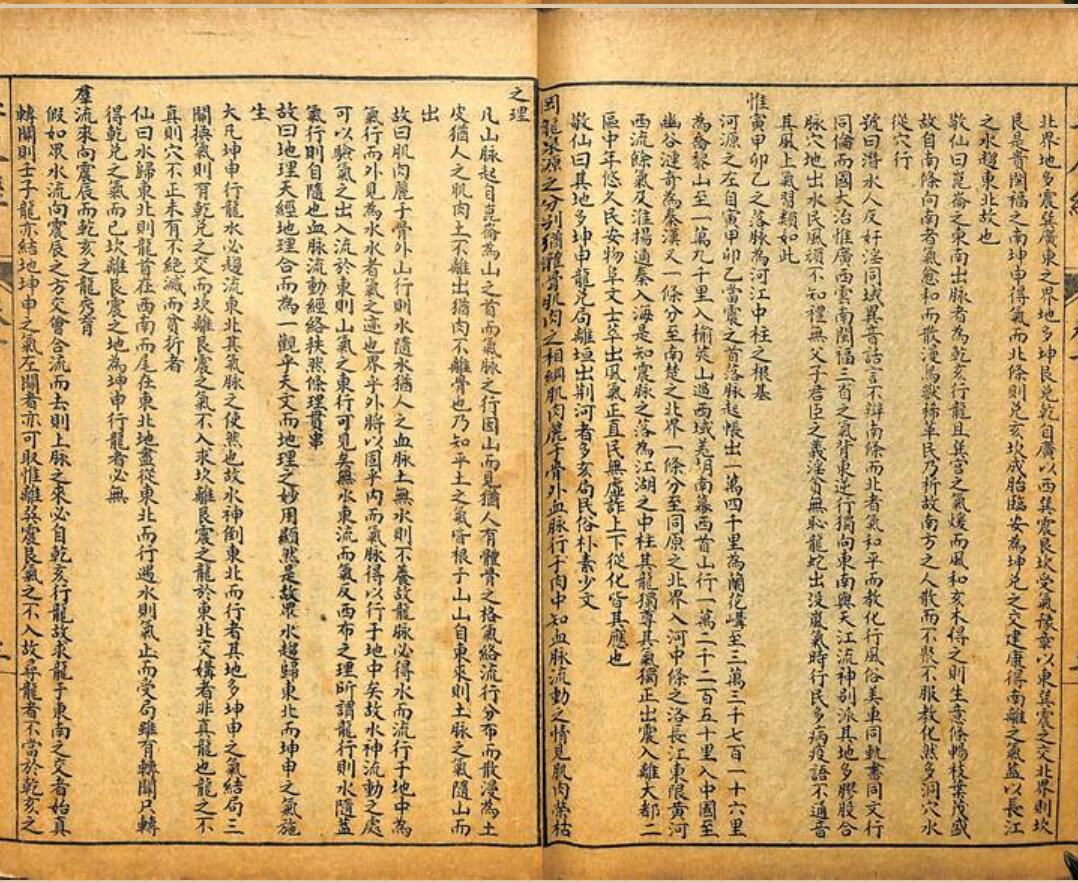 北界地多震巽廣東之界地多坤艮兌乾自廣以西巽震艮坎受氣豫章以東巽震之交北界則坎
艮是音閩福之南坤申得氣而北條則兌亥坎成胎臨安為坤兌之交建康得南離之氣蓋以長江
之水趨東北故也
敬仙曰崑崙之東南出脉者為乾亥行龍且巽宮之氣煖而風和亥未得之則生意條暢枝葉茂盛
故自南條向南者氣愈和而散漫鳥獸稀革民乃折故南方之人散而不聚不服教化然多洞穴水
從穴行
號曰潛水人反好淫同域異音話言不辯南條而北者氣和平而教化行風俗美車同軌書同文行
同倫而國大治惟廣西雲南閩福三省之氣背東逆行獨向東南與天江流神别派其地多膠股合
脉穴地出水民風頑不知禮無父子君臣之義淫貪無恥龍蛇出没嵐氣時行民多病疫語不通音
其風上氣習類如此
惟寅甲卯乙之落脉為河江中柱之根基
河源之左自寅甲卯乙當震之首落脉起帳出一萬四千里為蘭花嶠至三萬三千七百一十六里
為喬黎山至一萬九千里入榆英山過西域羌胡南幕西首山行一萬二千二百五十里入中國至
幽谷連奇為秦漢又一條分至南楚之北界一條分至同原之北界入河中條之洛長江東限黄河
西流餘氣及淮揚通秦入海是知震脉之落為江湖之中柱其龍獨尊其氣獨正出震入離大都二
區中年悠久民安物阜文士萃出風氣正直民無虛詐上下從化皆其應也
敬仙曰其地多坤申龍兌局離垣出荆河者多亥局民俗朴素少文
岡龍梁源之分别猶體骨肌肉之相綱肌肉麗于骨外血脉行于肉中知血脉流動之情見肌肉榮枯
之理
凡山脉起自崑崙為山之首而氣脉之行因山而見猶人有體骨之格氣絡流行分布而散漫為土
皮猶人之肌肉土不離出猶肉不離骨也乃知乎土之氣皆根于山山自東來則土脉之氣隨山而
出
故曰肌肉麗于骨外山行則水隨水猶人之血脉土無水則不養故龍脉必得水而流行于地中為
氣行而外見為水水者氣之迹也界乎外將以固乎内而氣脉得以行于地中矣故水神流動之處
可以驗氣之出入流於東則山氣之東行可見矣無水東流而氣反西布之理所謂龍行則水隨蓋
氣行則自隨也血脉流動經絡狭然條理貫串
故曰地理天經地理合而為一觀乎天文而地理之妙用顯然是故眾水趨歸東北而坤申之氣施
生
大凡坤申行龍水必趨流東北其氣脉之使然也故水神倒東北而行者其地多坤申之氣結局三
關換氣則有乾兌之交而坎離艮震之氣不入求坎離艮震之龍於東北交媾者非真龍也龍之不
真則穴不正未有不絶滅而貧折者
仙曰水歸東北則龍首在西南而尾在東北地盡從東北而行遇水則氣止而受局雖有轉關只轉
得乾兌之氣而已坎離艮震之地為坤申行龍者必無
羣流來向震辰而乾亥之龍秀育
假如眾水流向震辰之方交會合流而去則上脉之來必自乾亥行龍故求龍于東南之交者始真
轉關則壬子龍亦結地坤申之氣左關者亦可取惟離巽震艮氣之不入故尋龍者不當於乾亥之